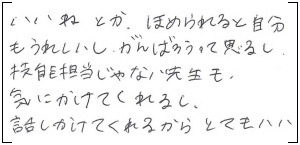 いいね とか、ほめられると自分
もうれしいし がんばろうって思るし
技能担当じゃない先生も、
気にかけてくれるし、
話しかけてくれるから とてもハハ